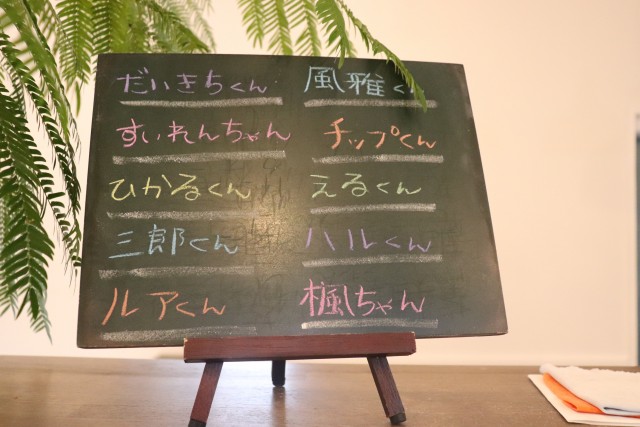 だいきちくん
すいれんちゃん
ひかるくん
三郎くん
ルアくん
風雅く
チップくん
えるくん
ハルくん
楓ちゃん